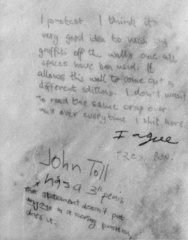 I protest I think it's
very good idea to wash the
graffiti off the walls once all
spaces have been used. It
allows this wall to come out a
different edition. I don't want
to read the same crap over
and over everytime I shit here
I agree
John Toll
has a 3" penis
The statement doesn't put
does it.